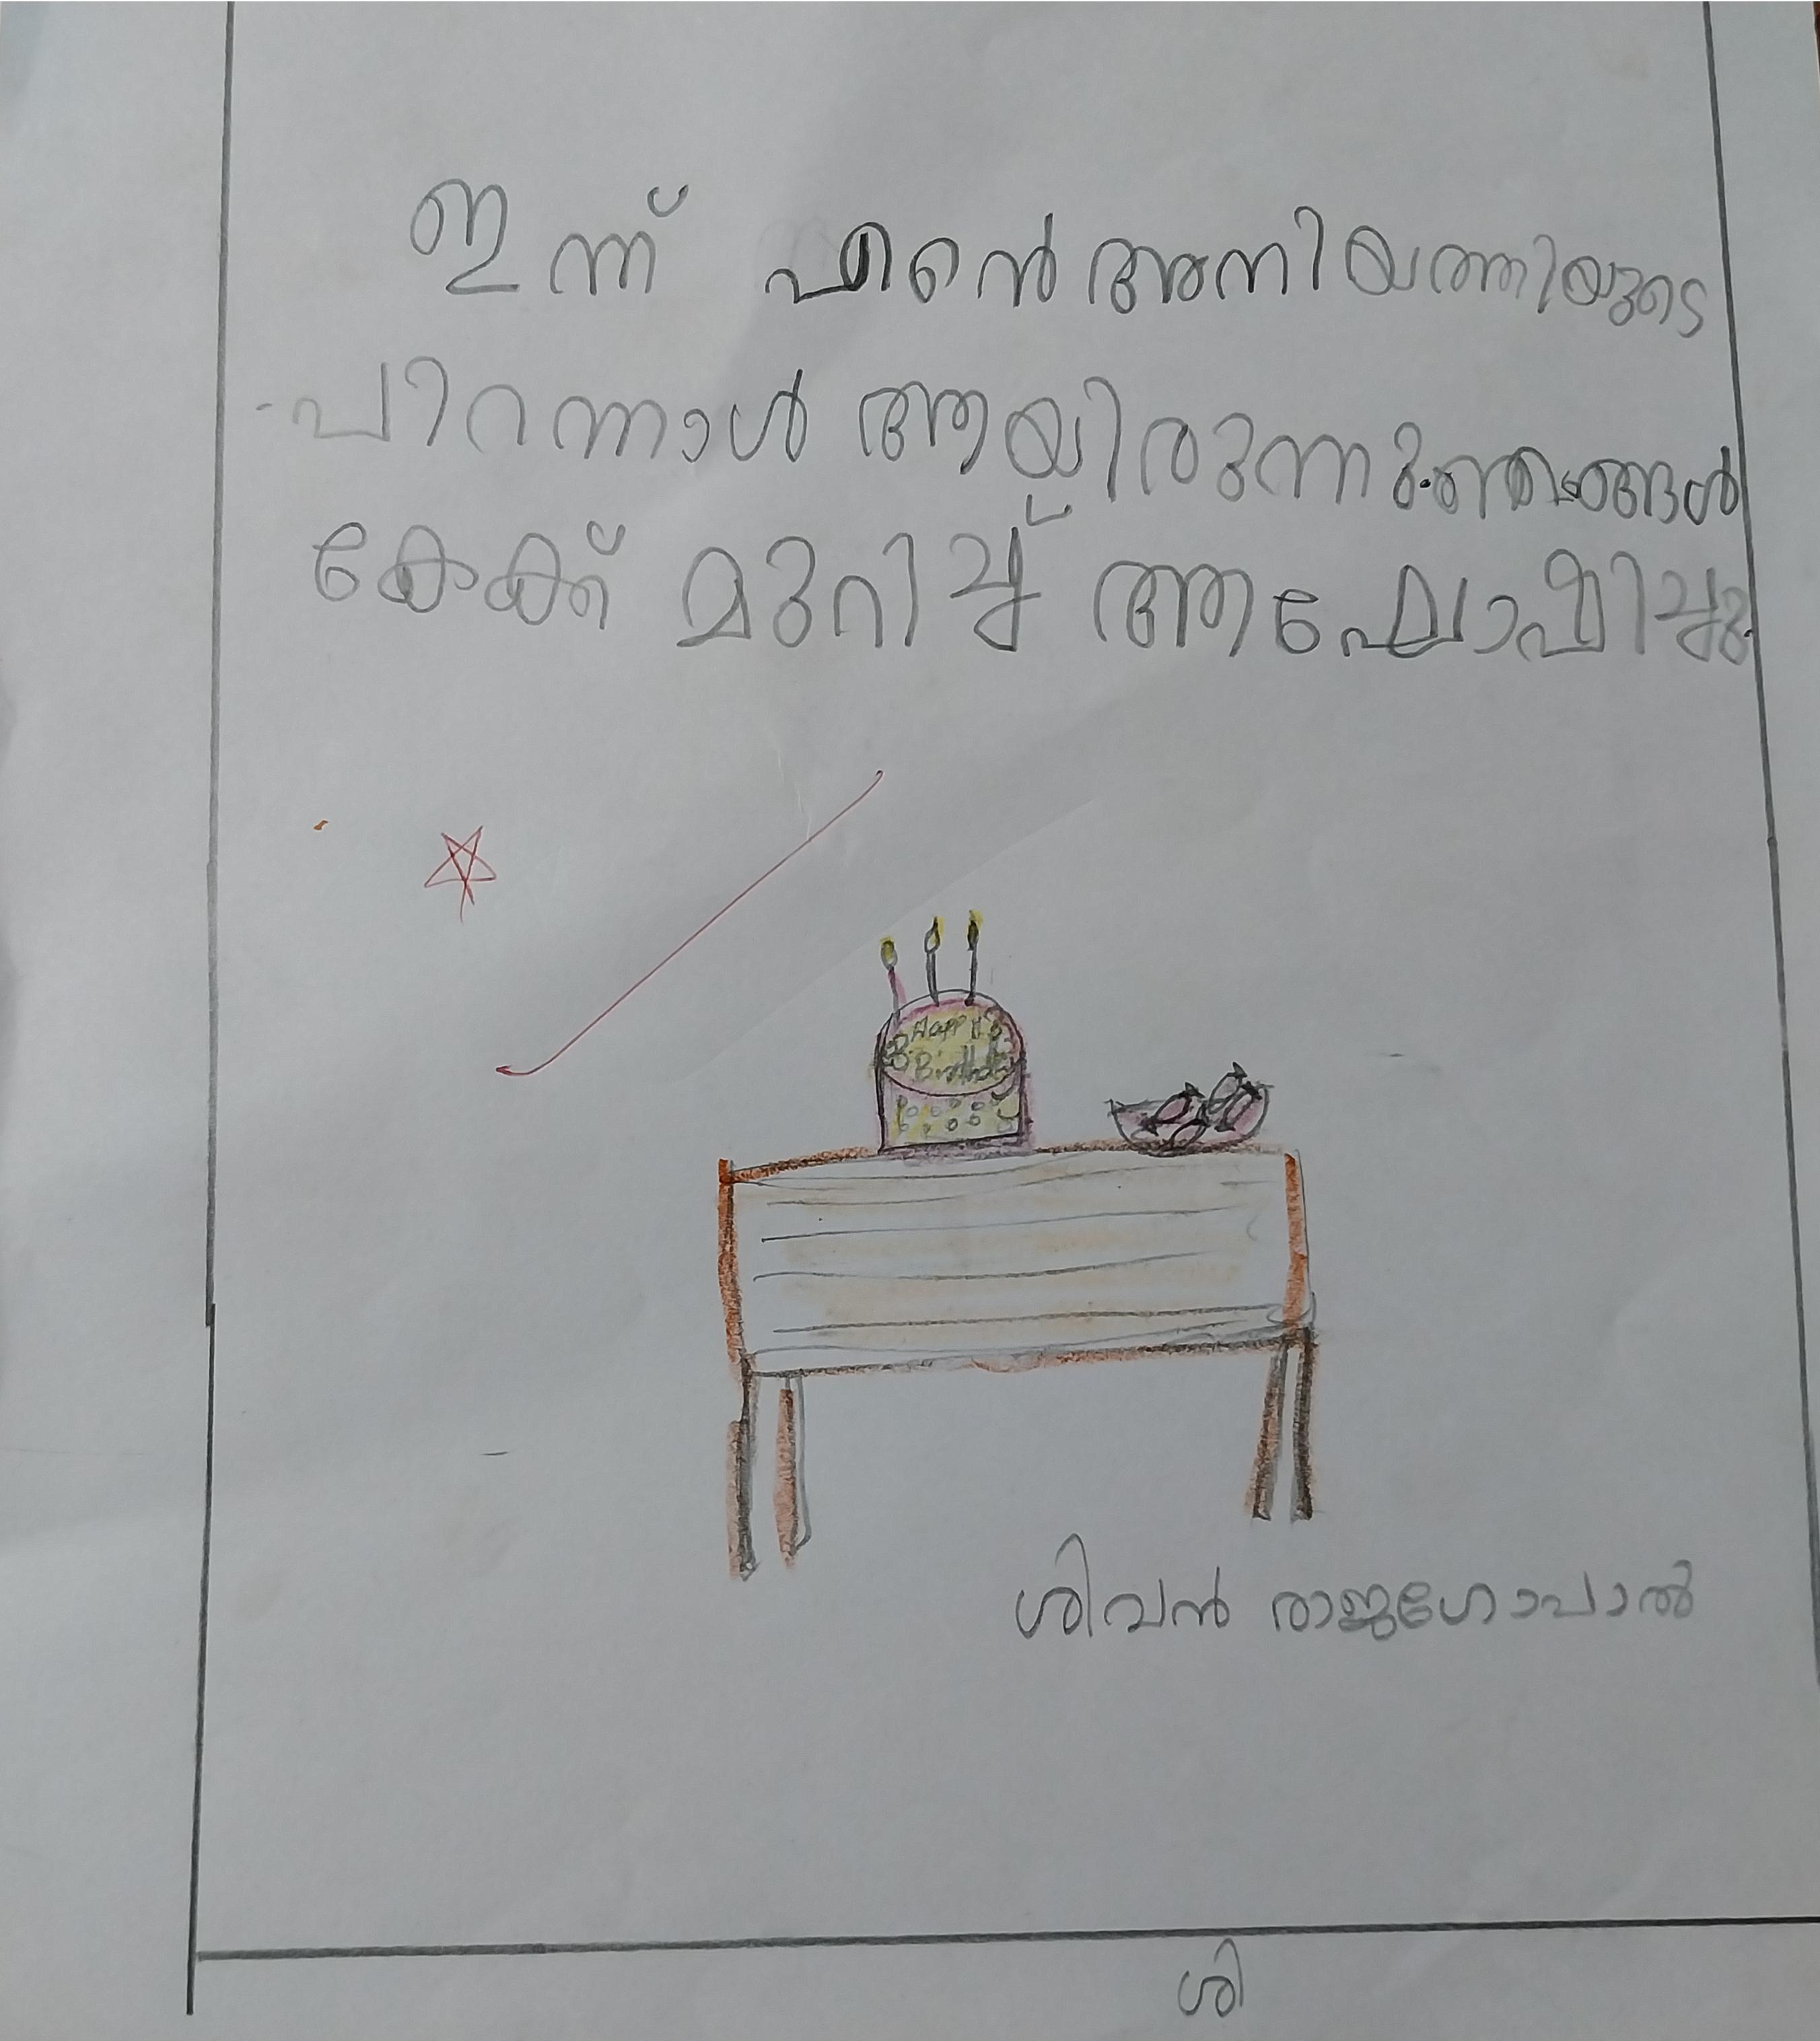 ഇന്ന് എന്റെ അനിയത്തിയുടെ
പിറന്നാൾ ആയിരുന്നു. ഞങ്ങൾ
കേക്ക് മുറിച്ച് ആഘോഷിച്ചു.
Happy
Birthday
ശിവൻ രാജഗോപാൽ
ശി